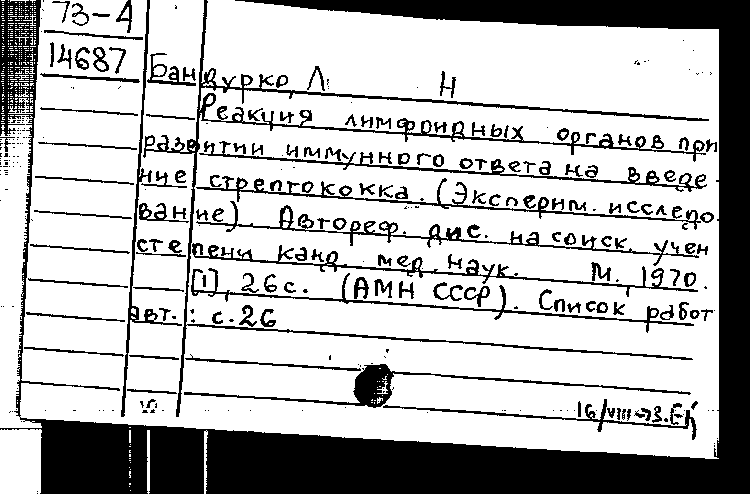 73-А
14687
Бандурко, Л Н
Реакция лимфоидных органов при
развитии иммунного ответа на введе-
ние стрептококка. (Эксперим. исследо-
вание). Автореф. дис. на соиск. учен
степени канд. мед. наук. М., 1970.
[1], 26 с. (АМН СССР). Список работ
авт.: с. 26
16/VIII-73.